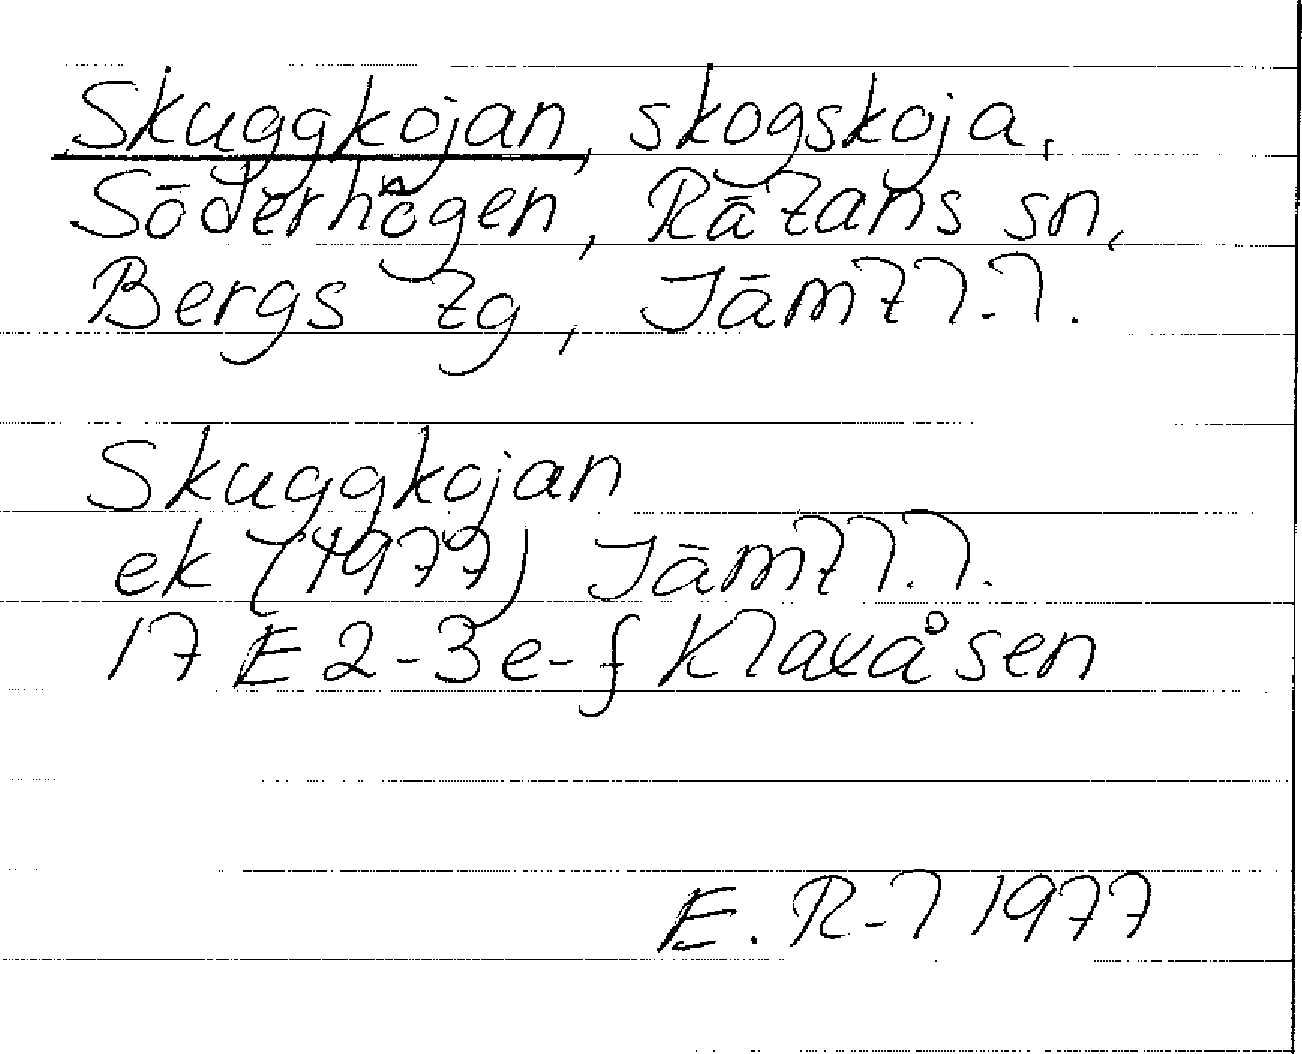 Skuggkojan, skogskoja,
Söderhögen, Rätans sn,
Bergs tg, Jämtl.l.
Skuggkojan
ek (1977) Jämtl.l.
17 E 2-3 e-f Klaxåsen
E. R-l 1977